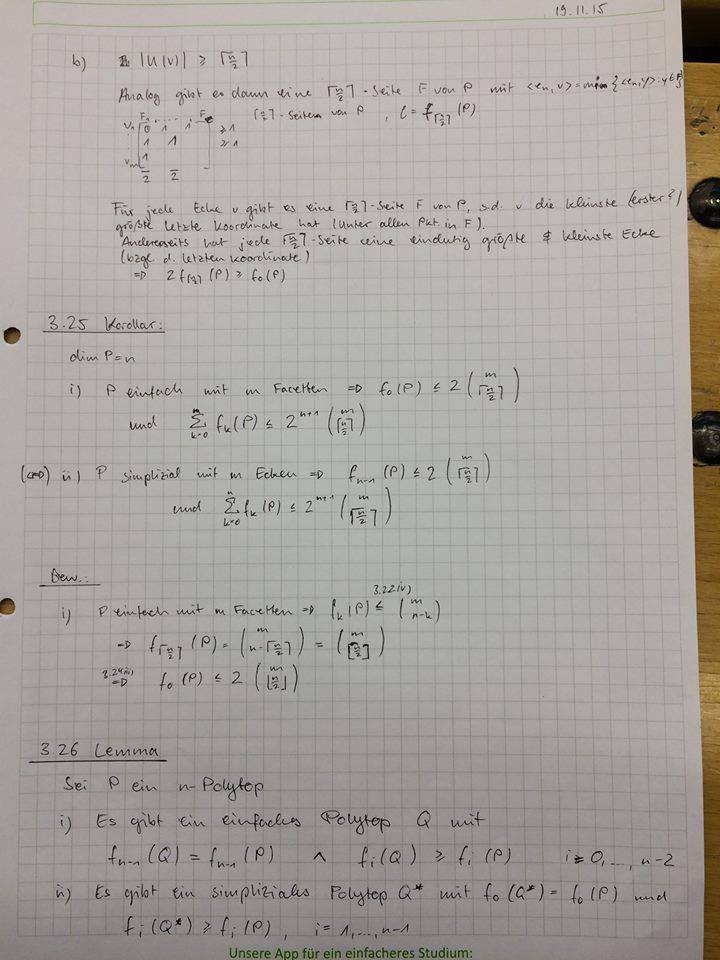 19.11.15
b) |U(v)| ≥ ⌈n/2⌉
Analog gibt es dann eine ⌈n/2⌉-Seite F von P mit <en,v> = min {<en,y> : y ∈ F}
F1 ..... F ⌈n/2⌉-Seiten von P , l = f⌈n/2⌉(P)
v1 0 1 1 ≥ 1
⋮ 1 1 ≥ 1
1
vm 1
2 2
Für jede Ecke v gibt es eine ⌈n/2⌉-Seite F von P, s.d. v die kleinste (erster?)
größte letzte Koordinate hat (unter allen Pkt. in F).
Andererseits hat jede ⌈n/2⌉-Seite eine eindutig größte & kleinste Ecke
(bzgl. d. letzten Koordinate)
⇒ 2f⌈n/2⌉(P) ≥ f0(P)
3.25 Korollar:
dim P = n
i) P einfach mit m Facetten ⇒ f0(P) ≤ 2 (m ⌈n/2⌉)
und Σ k=0 n fk(P) ≤ 2^n+1 (m ⌈n/2⌉)
(⇔) ii) P simplizial mit m Ecken ⇒ fn-1(P) ≤ 2 (m ⌈n/2⌉)
und Σ k=0 n fk(P) ≤ 2^n+1 (m ⌈n/2⌉)
Bew.:
3.22iv)
i) P einfach mit m Facetten ⇒ fk(P) ≤ (m n-k)
⇒ f⌈n/2⌉(P) = (m n-⌈n/2⌉) = (m ⌊n/2⌋)
⇒ f0(P) ≤ 2 (m ⌊n/2⌋)
3.26 Lemma
Sei P ein n-Polytop
i) Es gibt ein einfaches Polytop Q mit
fn-1(Q) = fn-1(P) ∧ fi(Q) ≥ fi(P) i = 0,...,n-2
ii) Es gibt ein simpliziales Polytop Q* mit f0(Q*) = f0(P) und
fi(Q*) ≥ fi(P), i = 1,...,n-1
Unsere App für ein einfacheres Studium: